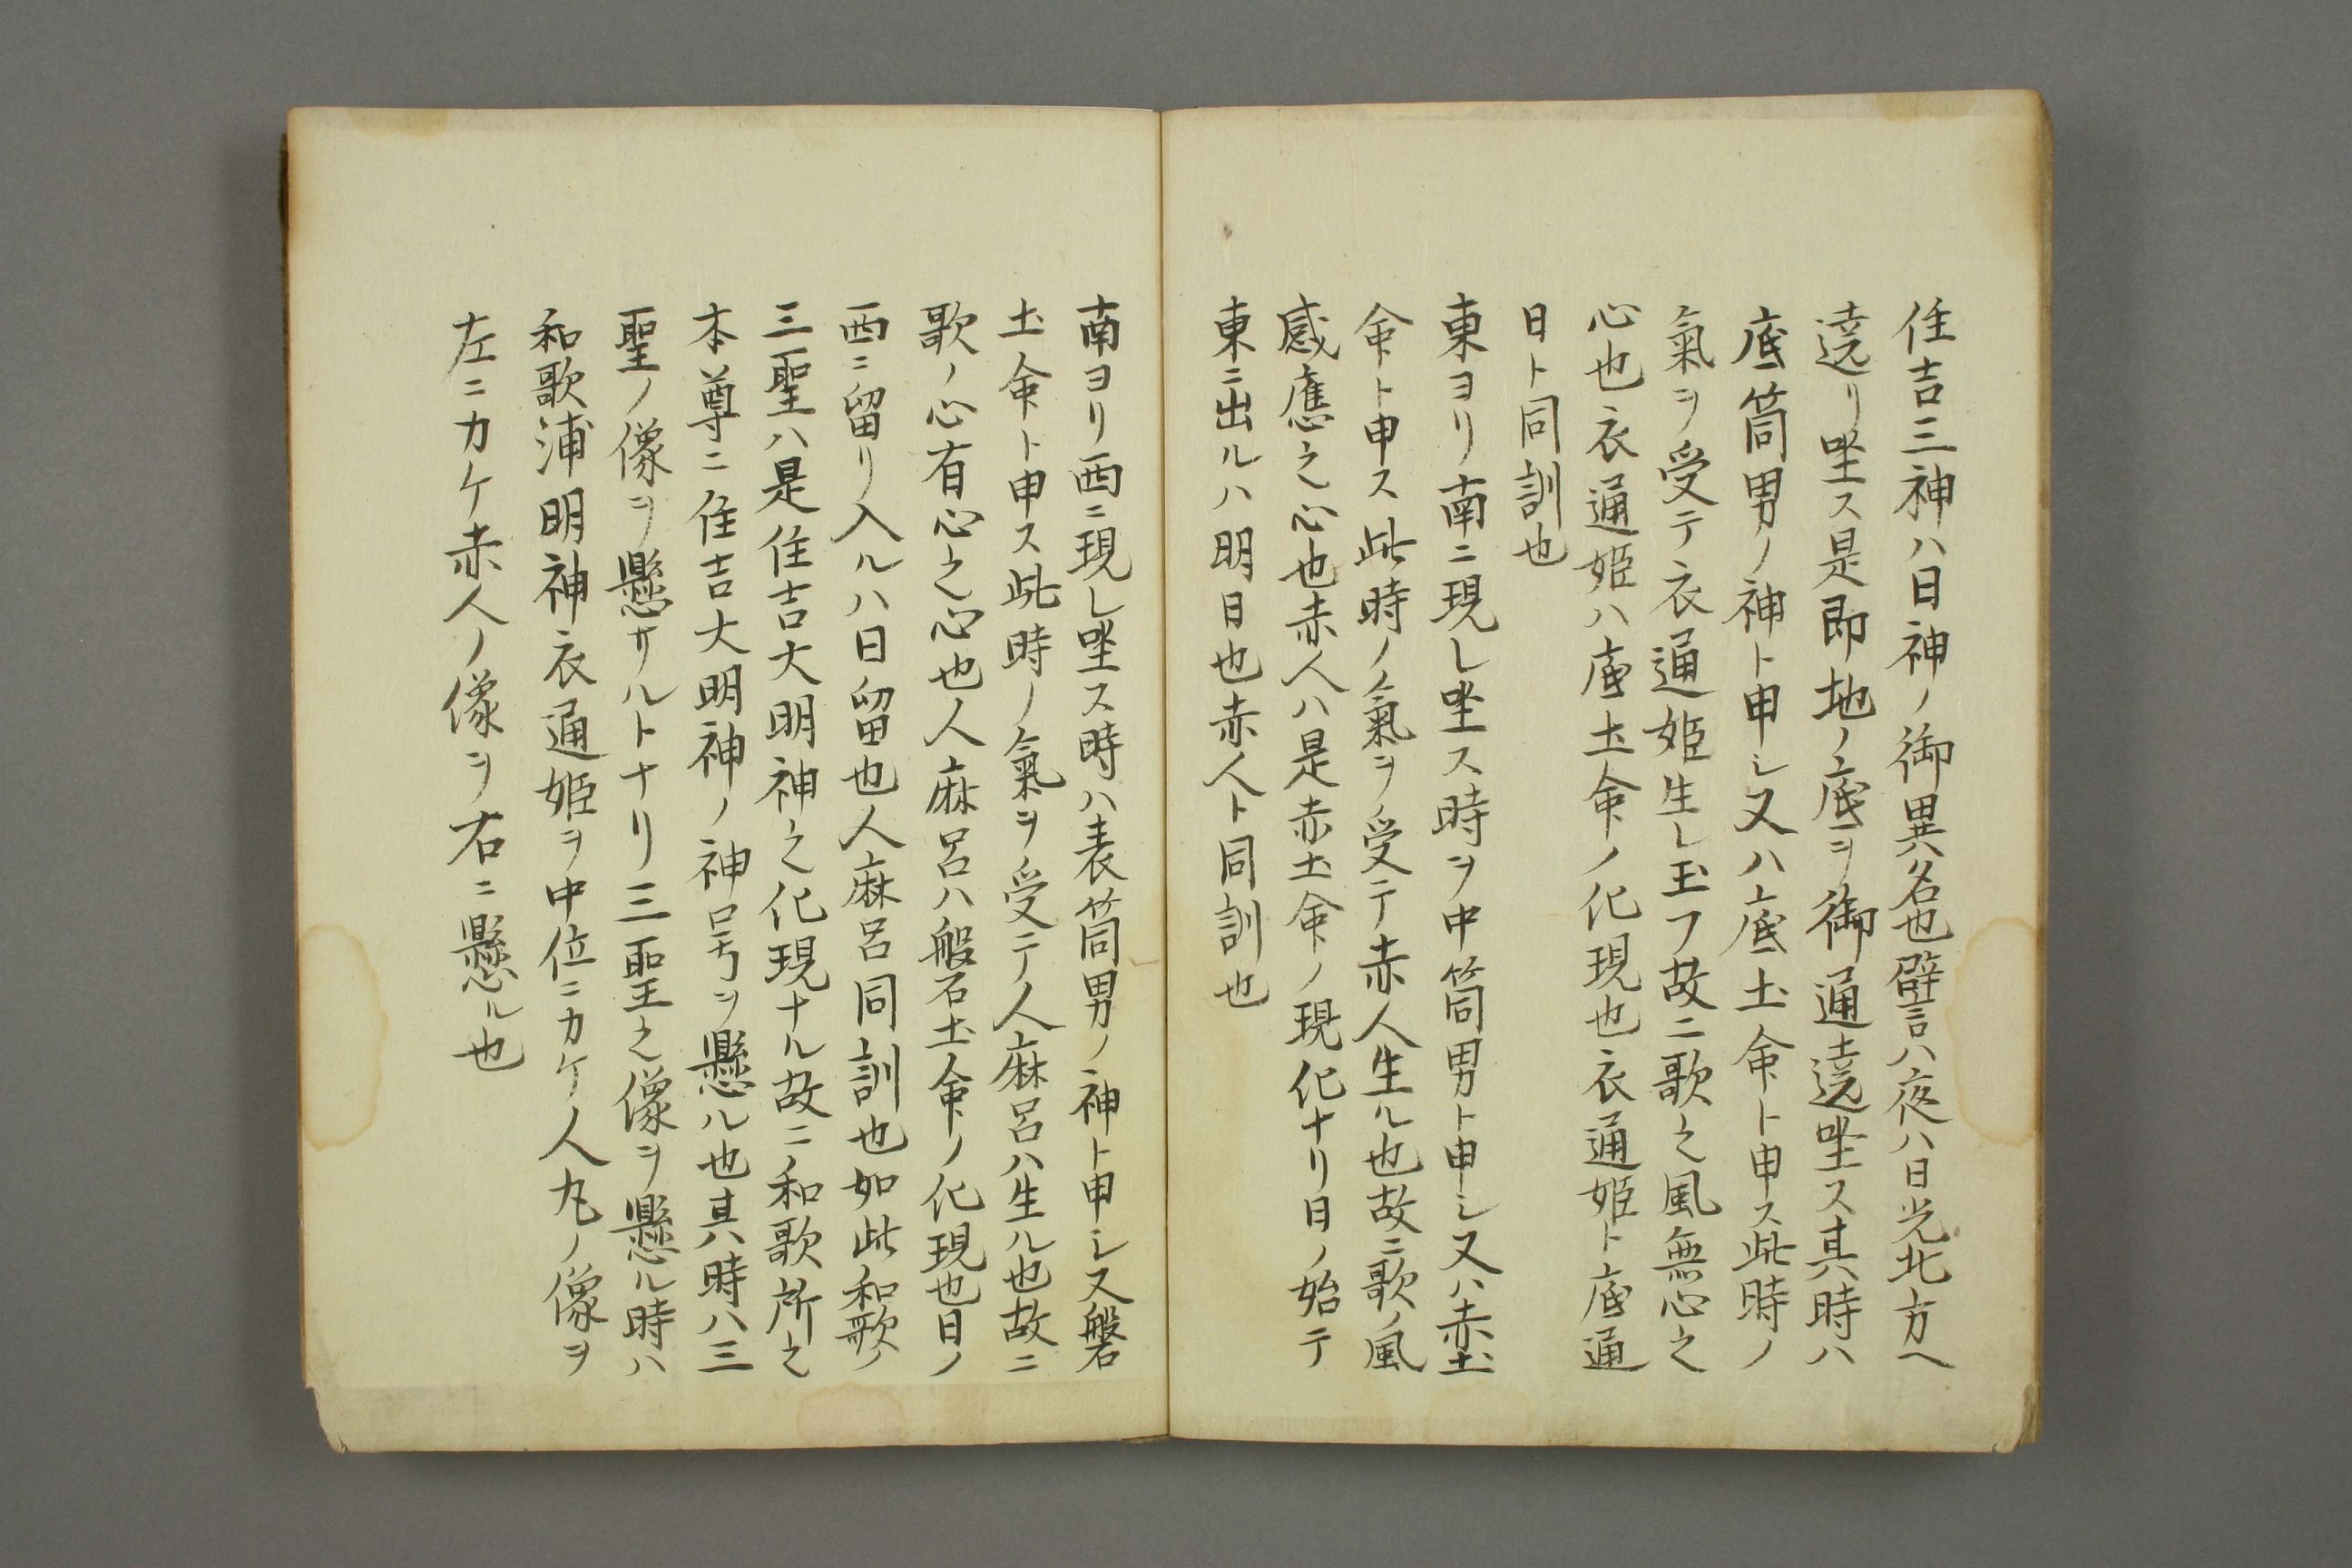 住吉三神ハ日神ノ御異名也譬言ハ夜ハ日光北方ヘ
遶リ坐ス是即地ノ底ヲ御通遶坐ス其時ハ
底筒男ノ神ト申シ又ハ底土命ト申ス此時ノ
氣ヲ受テ衣通姫生レ玉フ故ニ歌之風無心之
心也衣通姫ハ底土命ノ化現也衣通姫ト底通
日ト同訓也
東ヨリ南ニ現レ坐ス時ヲ中筒男ト申シ又ハ赤土
命ト申ス此時ノ氣ヲ受テ赤人生ル也故ニ歌ノ風
感應之心也赤人ハ是赤土命ノ現化ナリ日ノ始テ
東ニ出ルハ明日也赤人ト同訓也
南ヨリ西ニ現レ坐ス時ハ表筒男ノ神ト申シ又磐
土命ト申ス此時ノ氣ヲ受テ人麻呂ハ生ル也故ニ
歌ノ心有心之心也人麻呂ハ般石土命ノ化現也日ノ
西ニ留リ入ルハ日留也人麻呂同訓也如此和歌ノ
三聖ハ是住吉大明神之化現ナル故ニ和歌所之
本尊ニ住吉大明神ノ神号ヲ懸ル也其時ハ三
聖ノ像ヲ懸サルトナリ三聖之像ヲ懸ル時ハ
和歌浦明神衣通姫ヲ中位ニカケ人丸ノ像ヲ
左ニカケ赤人ノ像ヲ右ニ懸ル也